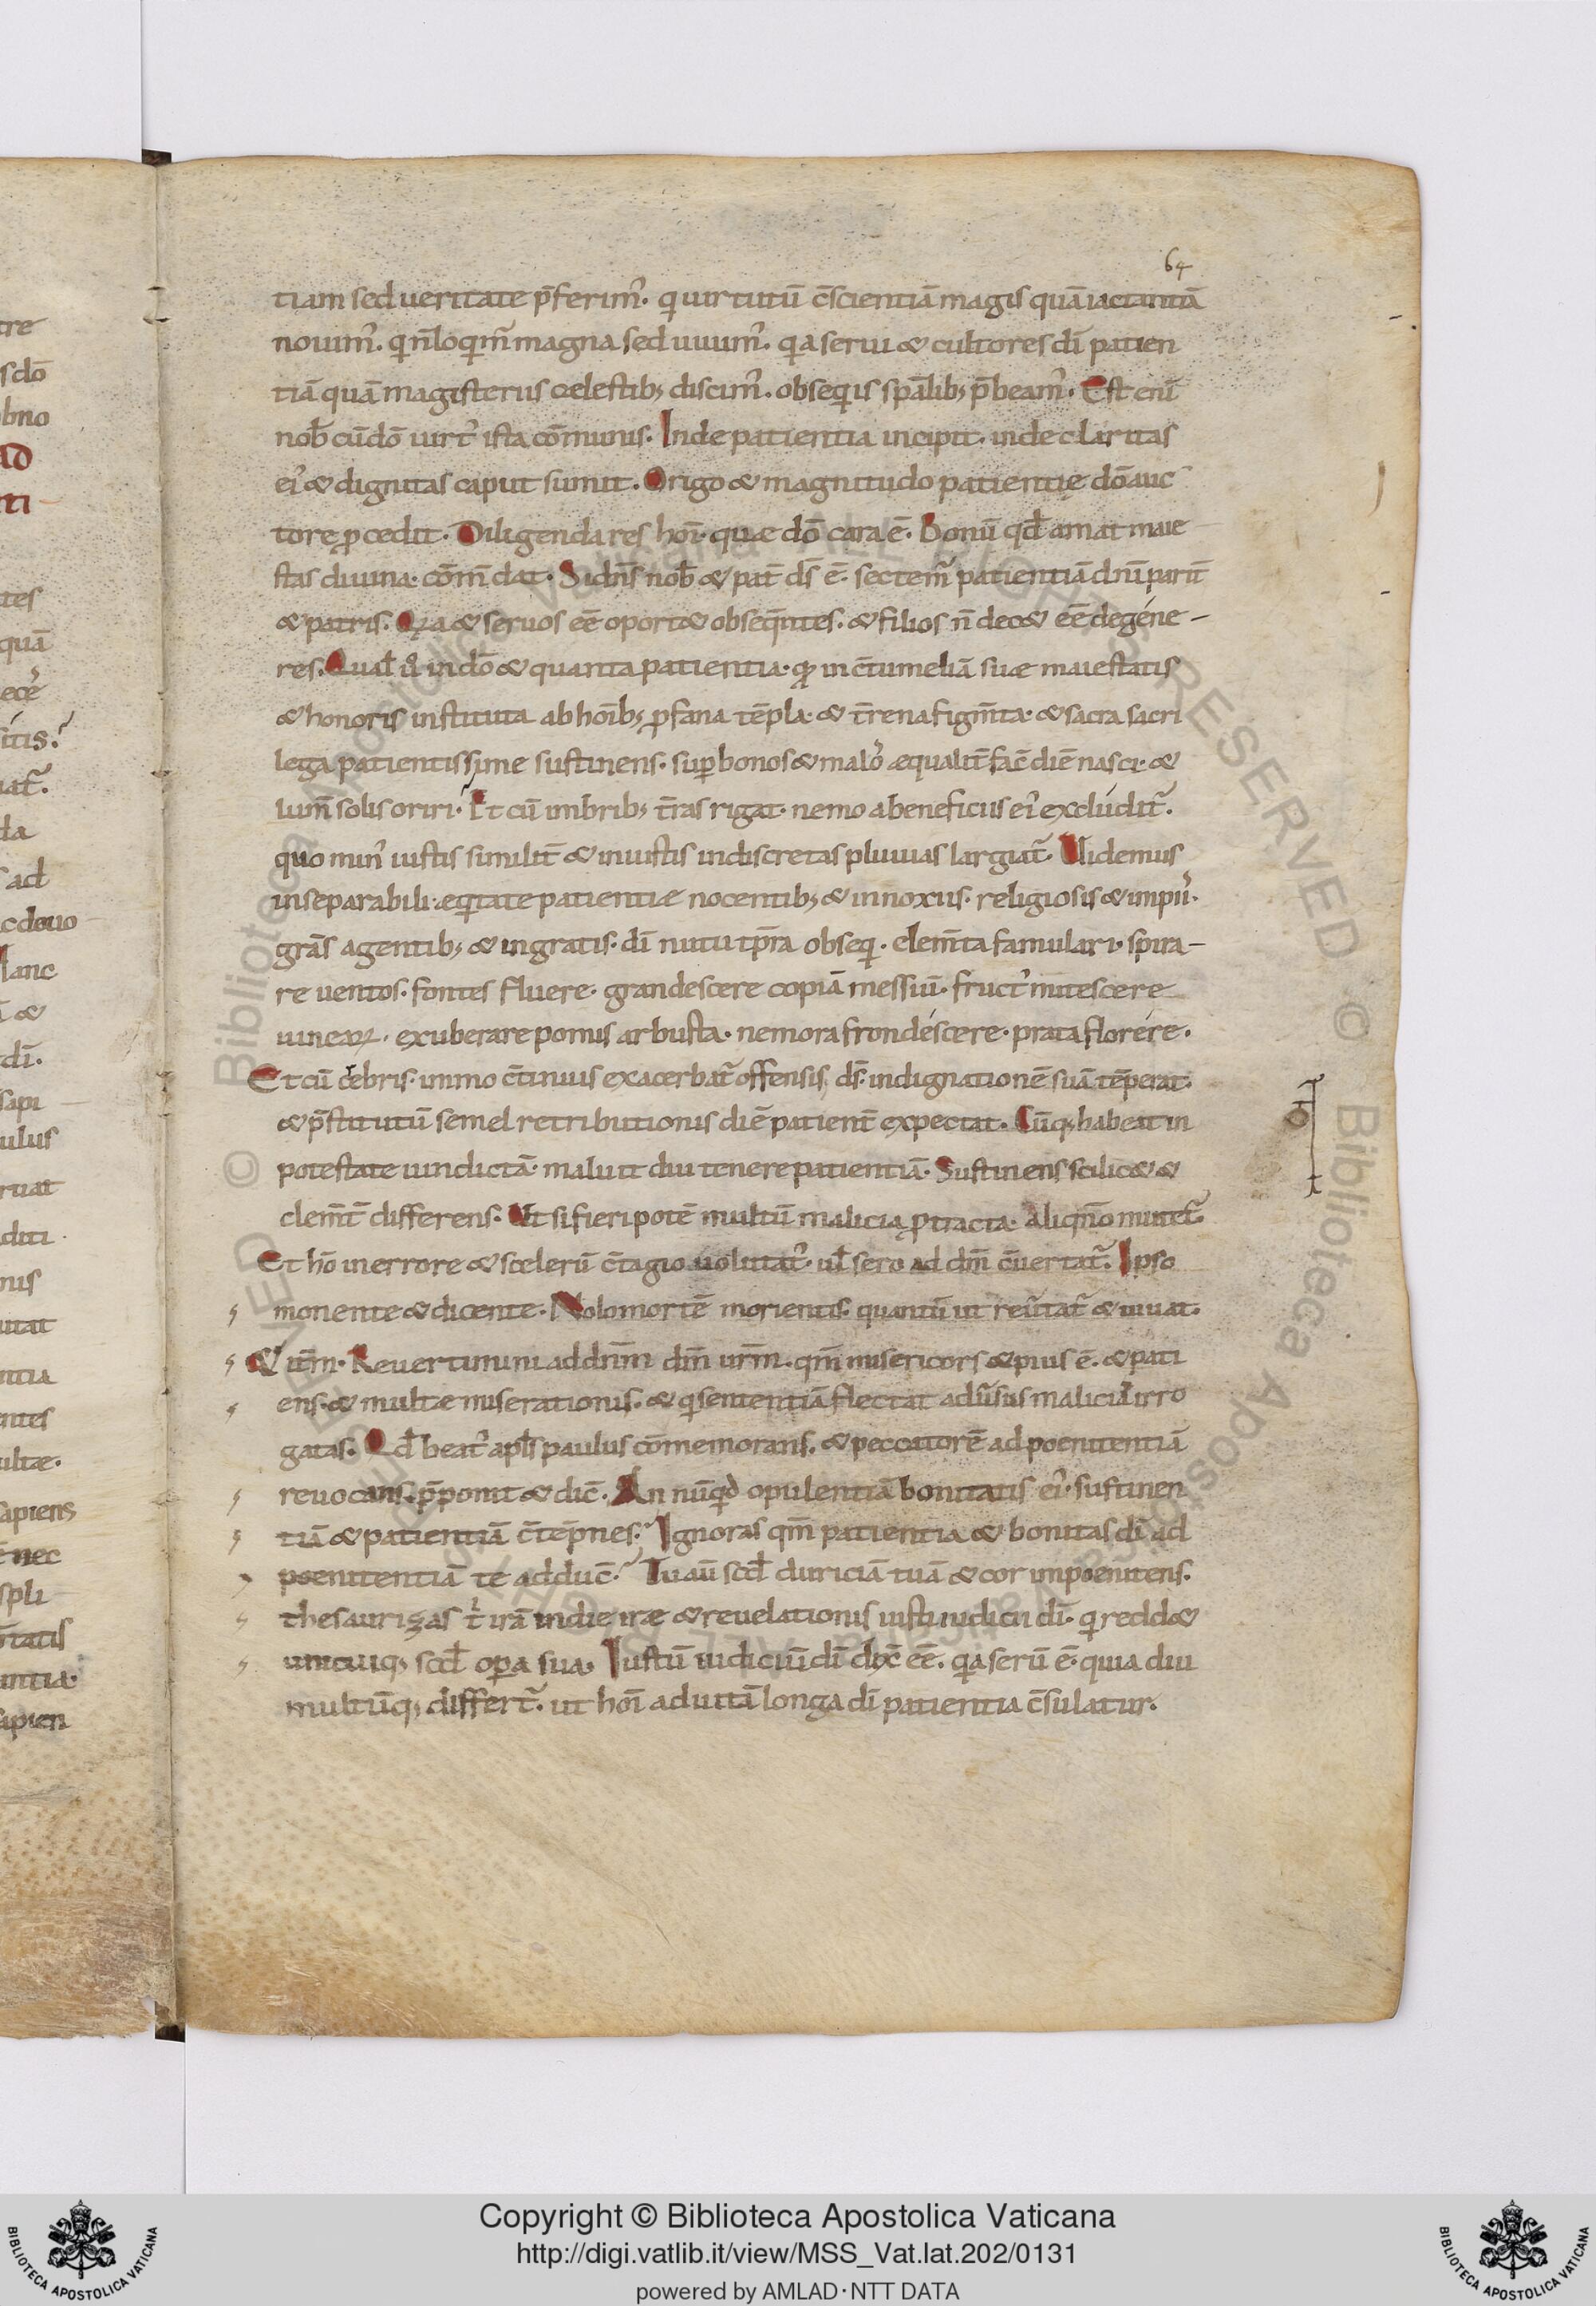 64
tiam sed ueritate p̄ferim᾿. qui uirtutū c̄scientiā magis quā iactantiā
nouim᾿. qi n̄ loqim᾿ magna sed uiuim᾿. qa serui & cultores dī patien
tiā quā magisteriis celestib; discim᾿. obseqiis spalib; p̄beam᾿. Est eni
nob̄ cū dō uirt᾿ ista cōmunis. Inde patientia incipit. inde claritas
ei᾿ & dignitas caput sumit. Origo & magnitudo patientie dō auc
tore pcedit. Diligenda res hoī. quae dō cara ē. Bonū qd̄ amat maie
stas diuina. cōm̄dat. Si dn̄s nob̄ & pat̄ ds̄ ē. sectem᾿ patientiā dn̄i parit̄
& patris. Qia & seruos eē oport& obseqntes. & filios n̄ dec& eē degéne-
res. Qual̄ ū in dō & quanta patientia. qd in c̄tumeliā suae maiestatis
& honoris instituta ab hoīb; pfana tēpla. & t̄rena figm̄ta. & sacra sacri
lega patientissime sustinens. sup bonos & malo᾿ aequalit̄ fac̄ diē nasci. &
lum̄ solis oriri. Et cū imbrib; t̄ras rigat. nemo a beneficiis ei᾿ excludit᾿.
quo min᾿ iustis similit̄ & iniustis indiscretas pluuias largiat᾿. Uidemus
inseparabili. aeqitate patientiae nocentib; & innoxiis. religiosis & impii᾿.
grās agentib; & ingratis. dī nutu tp̄ra obseqi. elem̄ta famulari. spira-
re uentos. fontes fluere. grandescere copiā messiū. fruct᾿ mitescere
uineaꝝ. exuberare pomis arbusta. nemora frondéscere. prata florére.
Et cū crebris. immo c̄tinuis exacerbat᾿ offensis ds̄. indignationē suā tēperat.
& p̄stitutū semel retributionis diē patient̄ expectat. Cūq; habeat in
potestate uindictā. maluit diu tenere patientiā. Sustinens scilic& &
clem̄t̄ differens. Ut si fieri potē multū malicia ptracta. Aliqn̄o mutet᾿
Et hō in errore & scelerū c̄tagio uolutat᾿. ul̄ sero ad dm̄ c̄uertat᾿. Ipso
monente & dicente. Nolo mortē morientis. quantū ut reūtat᾿ & uiuat.
& itm̄. Reuertimini ad dn̄m dm̄ urm̄. qm̄ misericors & pius ē. & pati
ens. & multae miserationis. & qi sententiā flectat adūsus maliciā irro
gatas. Qd̄ beat᾿ apls̄ paulus cōmemorans. & peccatorē ad poenitentiā
reuocans. p̄ponit & dic̄. An nūqid opulentiā bonitatis ei᾿. sustinen
tiā & patientiā c̄tēpnes. Ignoras qm̄ patientia & bonitas dī ad
poenitentiā te adduc̄. Tu aū scd̄ duriciā tuā & cor impoenitens.
thesaurizas t᾿ irā in die irae & reuelationis iusti iudicii dī. qi redd&
unicuiq; scd̄ opa sua. Iustū iudiciū dī dix̄ eē. qa serū ē. quia diu
multūq; differt᾿. ut hoī ad uitā longa dī patientia c̄sulatur.
tre
s dō
bno
ad
nti
tes
quā
da
ad
c deuo
lanc
dī.
sapi
ulus
ruat
diti
nus
utat
ntia
entes
ultae.
sapiens
nec
spli
untia.
sapien
Copyright © Biblioteca Apostolica Vaticana
http://digi.vatlib.it/view/MSS_Vat.lat.202/0131
powered by AMLAD·NTT DATA
BIBLIOTECA APOSTOLICA VATICANA
BIBLIOTECA APOSTOLICA VATICANA